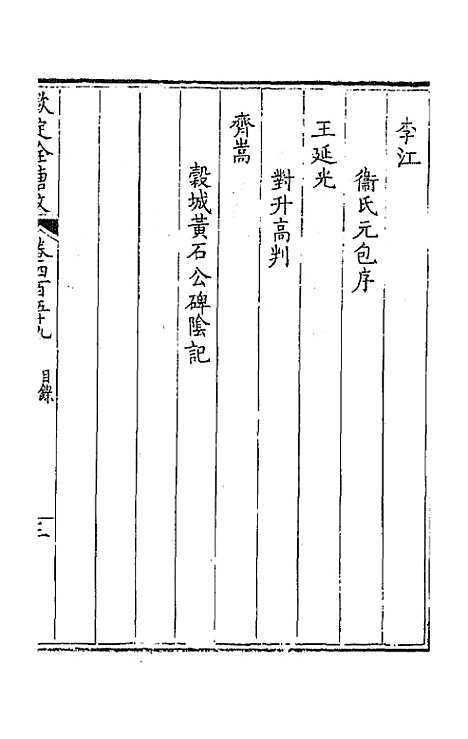 李江
衞氏元包序
王延光
對升高判
齊嵩
穀城黃石公碑陰記
欽定全唐文
卷四百五十九
目錄
三